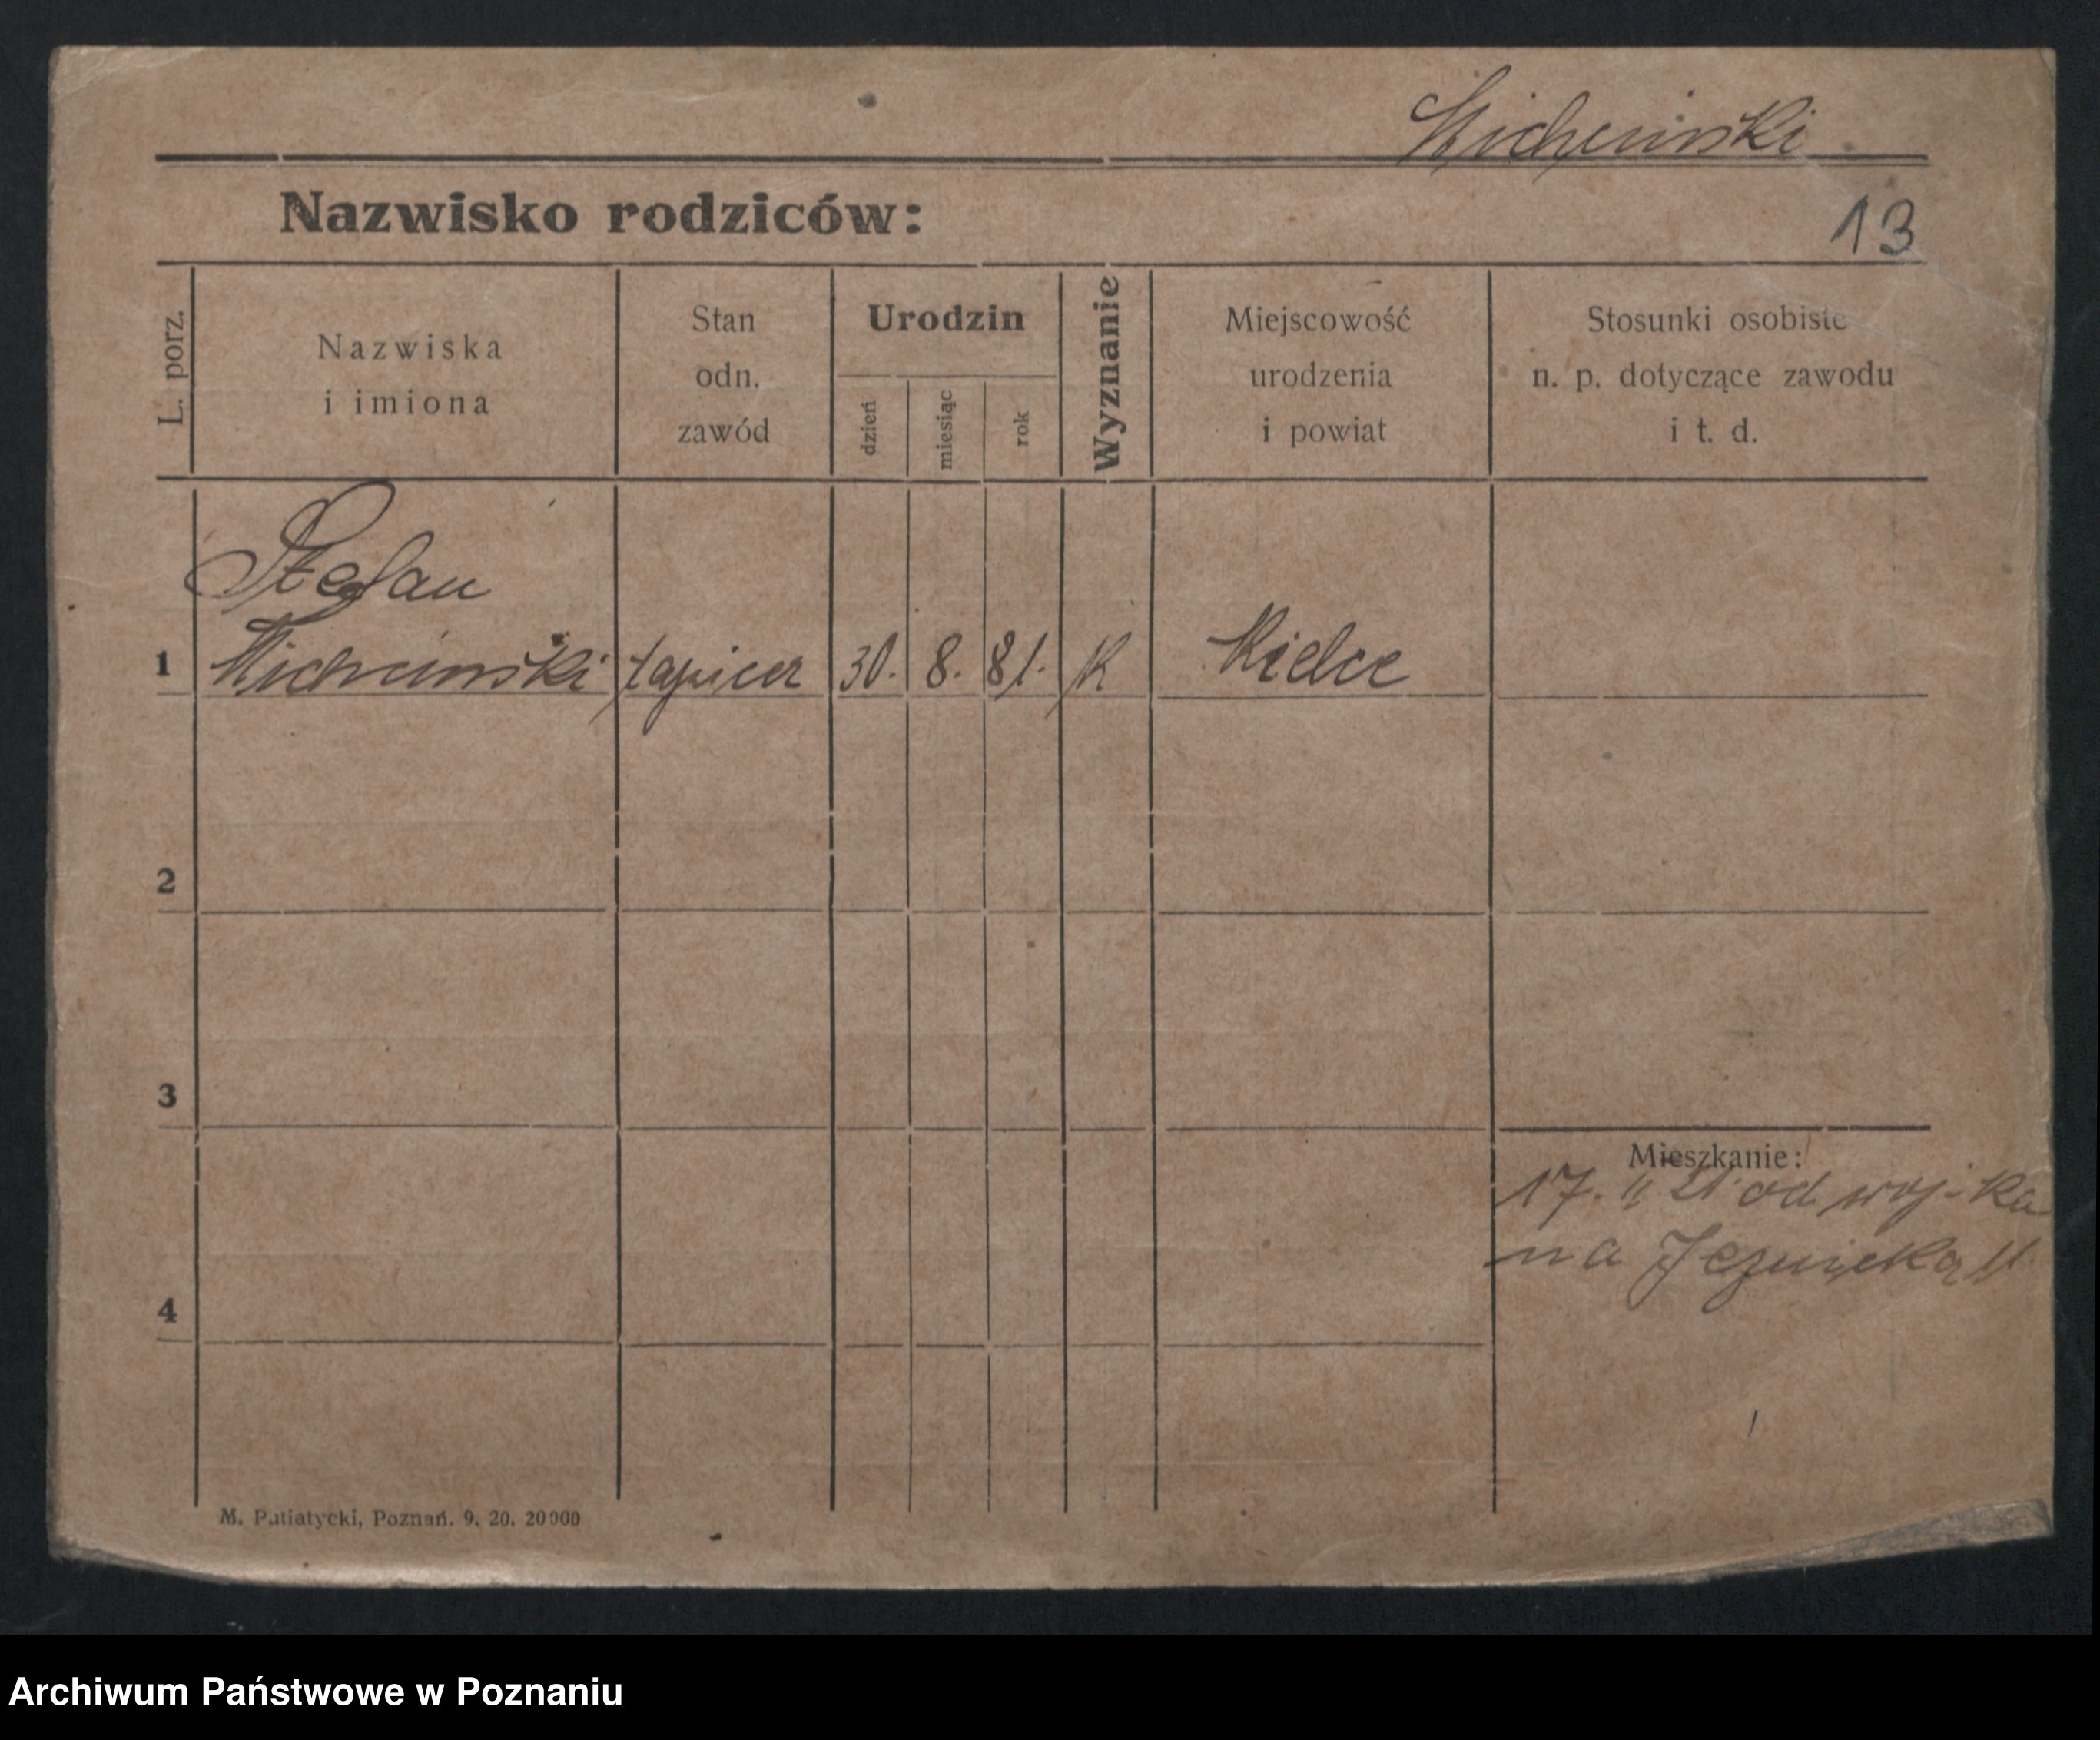 Michciński
Nazwisko rodziców:
13
L. porz.
Nazwiska
i imiona
Stan
odn.
zawód
Urodzin
dzień
miesiąc
rok
Wyznanie
Miejscowość
urodzenia
i powiat
Stosunki osobiste
n. p. dotyczące zawodu
i t. d.
Stefan
1 Michciński tapicer 30. 8. 81. K Kielce
2
3
Mieszkanie:
17. II 21 od wojska
na
4
M. Putiatycki, Poznań. 9. 20. 20000
Archiwum Państwowe w Poznaniu